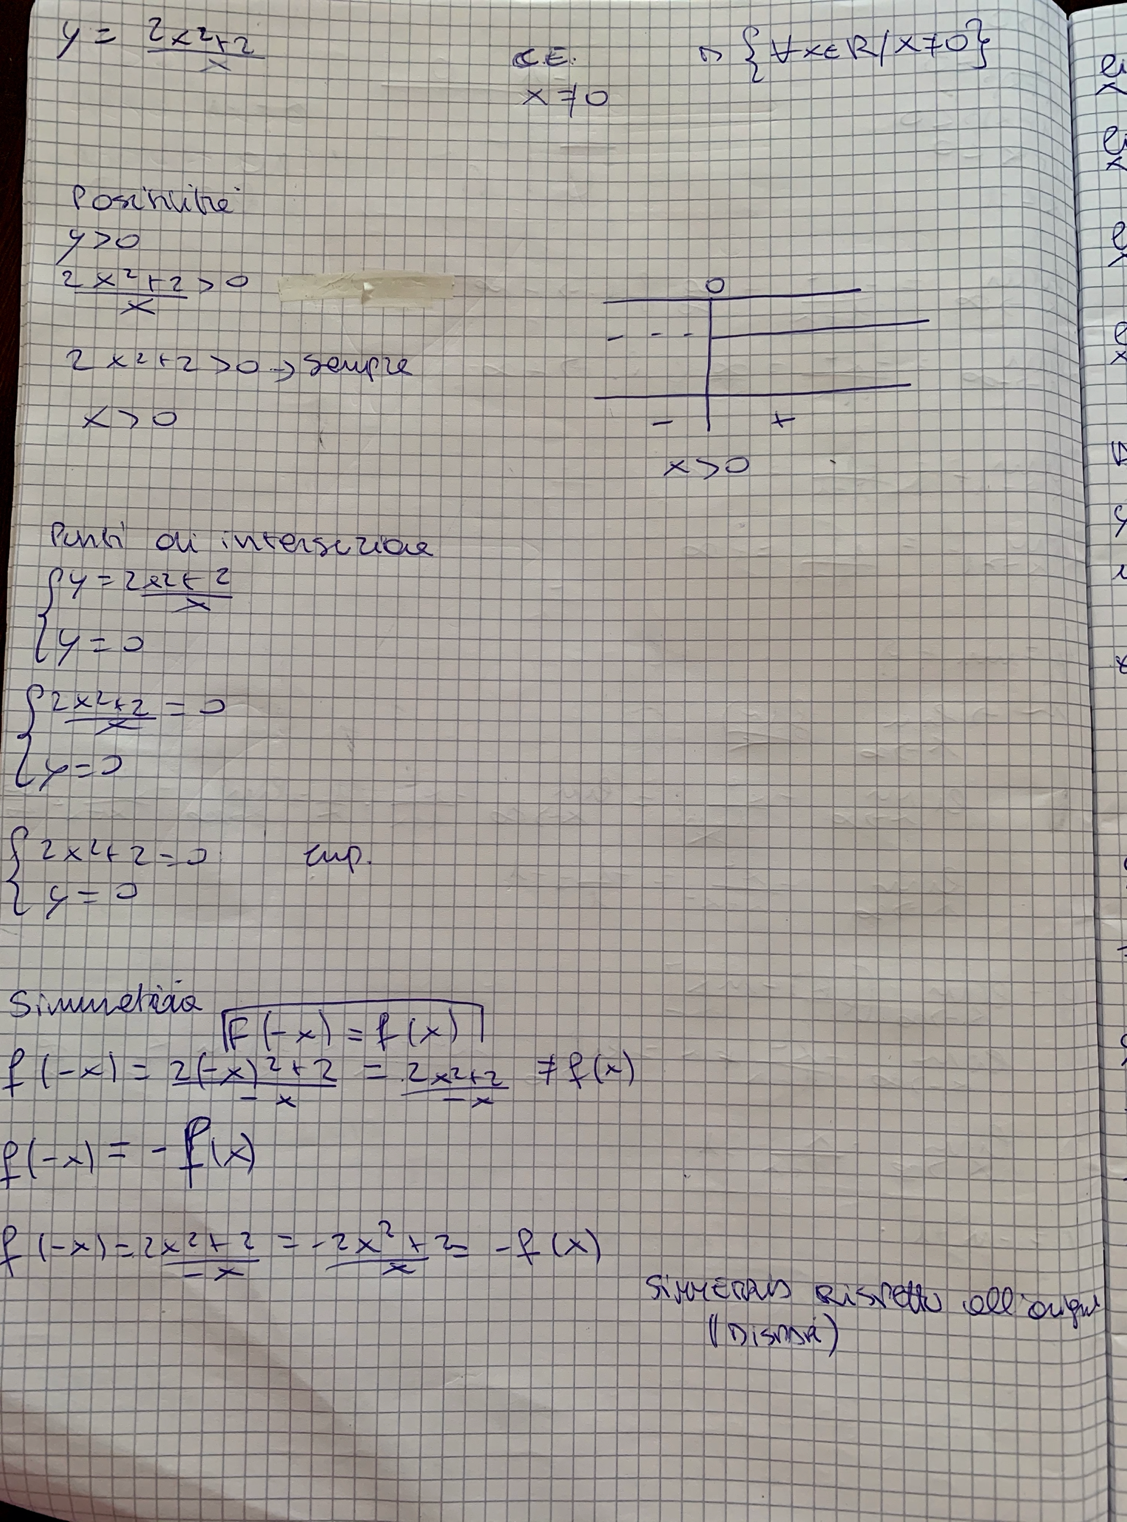 y = 2x²+2 / x
C.E. D {∀x∈R/x≠0}
x ≠ 0
Positività
y>0
2x²+2 / x > 0
0
2x²+2>0 → sempre
x>0
- +
x>0
Punti di intersezione
{ y = 2x²+2 / x
y = 0
{ 2x²+2 / x = 0
y=0
{ 2x²+2=0 imp.
y=0
Simmetria
F(-x) = f(x)
f(-x) = 2(-x)²+2 / -x = 2x²+2 / -x ≠ f(x)
f(-x) = -f(x)
f(-x) = 2x²+2 / -x = -2x²+2 / x = -f(x)
Rispetto all'origine